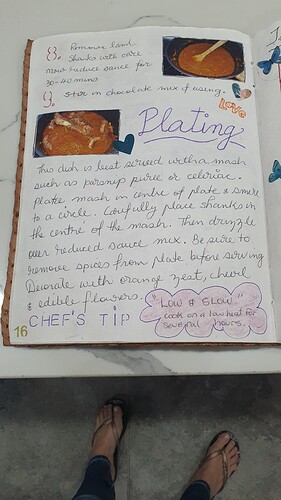 8. Remove lamb
shanks with care
now reduce sauce for
30-40 mins
9. Stir in chocolate mix &
LOVE
Plating
This dish is best served with a mash
such as parsnip puree or celeriac.
Plate, mash in centre of plate & smere
to a circle. Carefully place shanks in
the centre of the mash. Then drizzle
over reduced sauce mix. Be sure to
remove spices from plate before serving
Decorate with orange zest,
& edible flowers.
"LOW & SLOW"
cook on a low heat for
several hours.
CHEF'S TIP
16